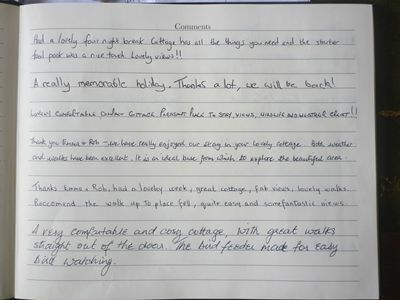 Comments
Had a lovely four night break. Cottage has all the things you need and the starter
food pack was a nice touch. Lovely views!!
A really memorable holiday. Thanks a lot, we will be back!
LOVELY COMFORTABLE COMPACT COTTAGE. PLEASANT PLACE TO STAY, VIEWS, WILDLIFE AND WEATHER GREAT!!
Thank you Emma & Rob - we have really enjoyed our stay in your lovely cottage. Both weather
and walks have been excellent. It is an ideal base from which to explore the beautiful area.
Thanks Emma & Rob, had a loveby week, great cottage, fab views, lovely walks.
Reccomend the walk up to place fell, quite easy and some fantastic views
A very comfortable and cosy cottage, with great walks
straight out of the door. The bird feeder made for easy
bird watching.